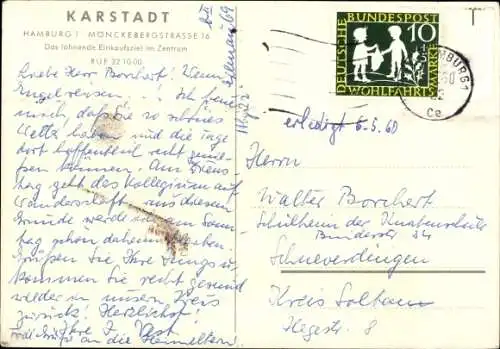 KARSTADT
HAMBURG 1 MÖNCKEBERGSTRASSE 16
Das lohnende Einkaufsziel im Zentrum
RUF 32 10 00
Liebe Herr Borchert! Wenn
Engel reisen! Ich freue
mich, daß Sie so schönes
haben und die Tage
dort hoffentlich recht genie-
ßen können. Am Diens-
tag geht das Kollegium auf
Wanderschaft aus diesem
Grunde werde am Sonn-
tag schon daheim
Grüßen Sie Ihre Jungs u.
kommen Sie recht gesund
wieder in unsern Kreis
zurück! Herzlichst
Ihre J. Vast
Grüße an die Heimeltern
DEUTSCHE BUNDESPOST
10
+5
WOHLFAHRTSMARKE
HAMBURG 1
Ce
erledigt 6.5.60
Herrn
Walter Borchert
Schulheim der
34
Schneverdingen
Kreis Soltau
Hegestr. 8